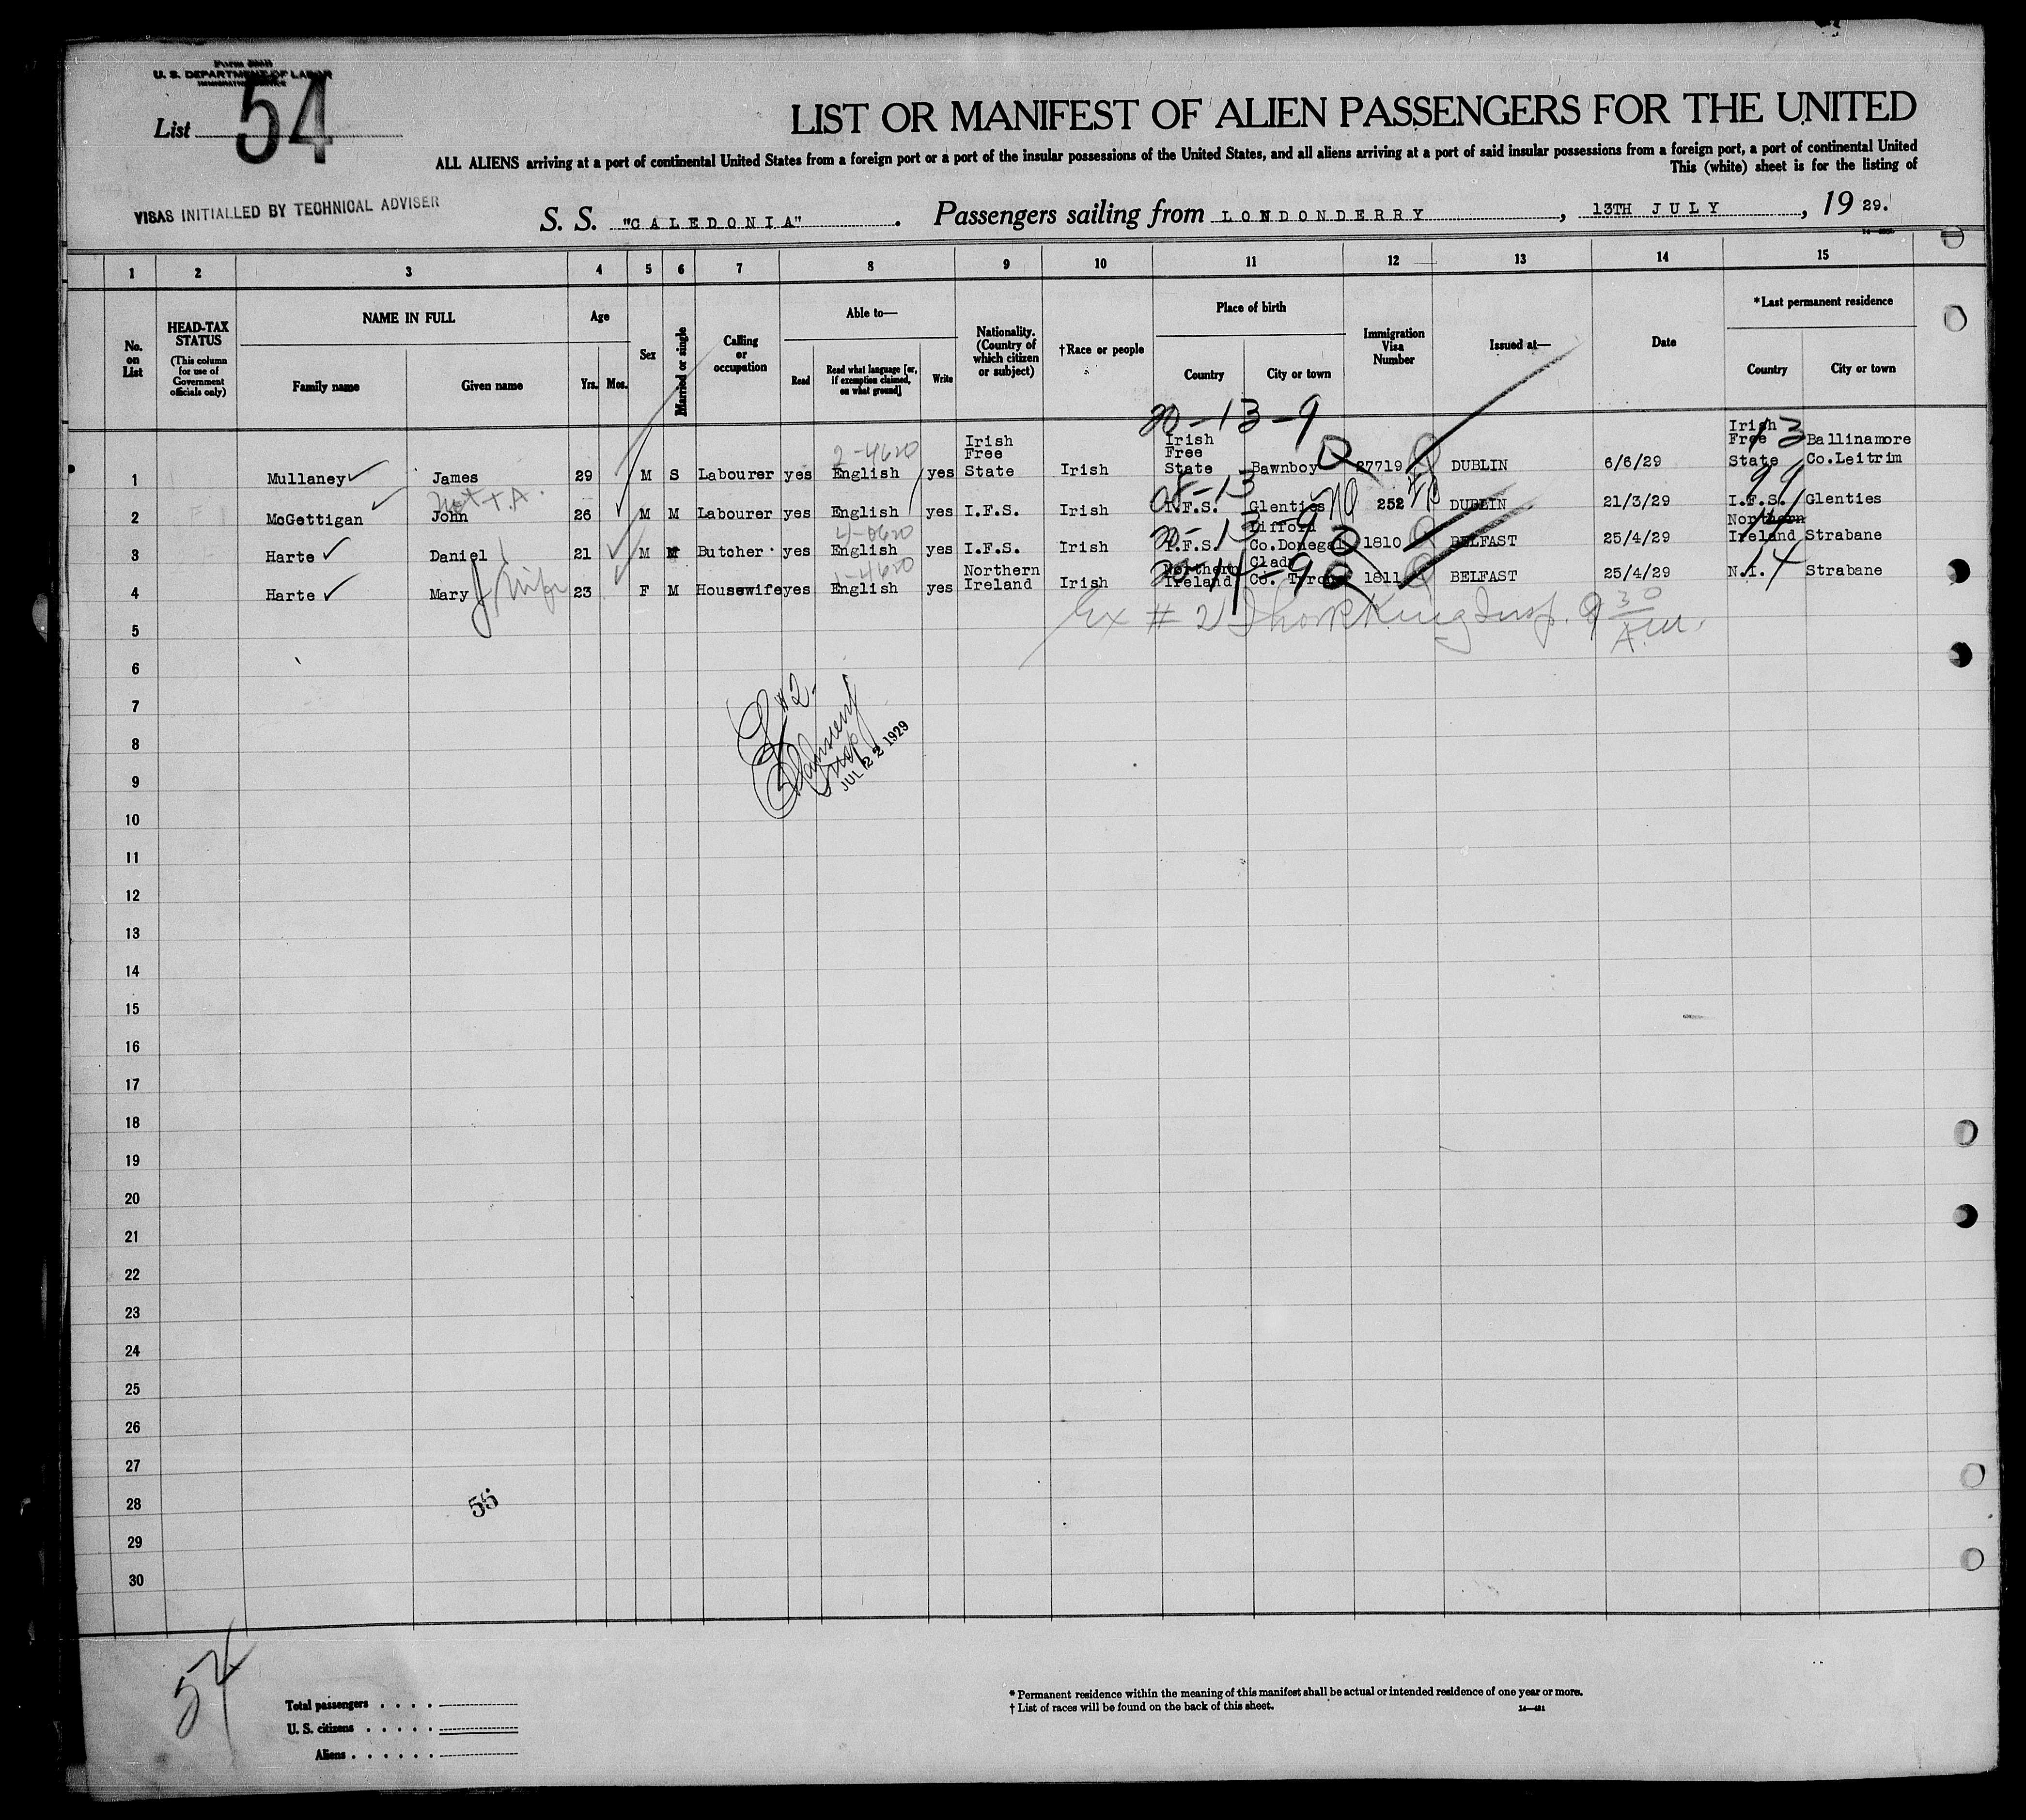 Form 500B
U. S. DEPARTMENT OF LABOR
IMMIGRATION SERVICE
List 54
LIST OR MANIFEST OF ALIEN PASSENGERS FOR THE UNITED
ALL ALIENS arriving at a port of continental United States from a foreign port or a port of the insular possessions of the United States, and all aliens arriving at a port of said insular possessions from a foreign port, a port of continental United
This (white) sheet is for the listing of
VISAS INITIALLED BY TECHNICAL ADVISER
S. S. "CALEDONIA". Passengers sailing from LONDONDERRY, 13TH JULY, 19 29.
1 2 3 4 5 6 7 8 9 10 11 12 13 14 15
No. on List
HEAD-TAX STATUS (This column for use of Government officials only)
NAME IN FULL Family name Given name
Age Yrs. Mos.
Sex
Married or single
Calling or occupation
Able to— Read Read what language [or, if exemption claimed, on what ground] Write
Nationality. (Country of which citizen or subject)
†Race or people
Place of birth Country City or town
Immigration Visa Number
Issued at—
Date
*Last permanent residence Country City or town
20-13-9
2-4620
1 Mullaney James 29 M S Labourer yes English yes Irish Free State Irish Irish Free State Bawnboy 27719 DUBLIN 6/6/29 Irish Free State Ballinamore Co.Leitrim
13
Not T.A.
2 McGettigan John 26 M M Labourer yes English yes I.F.S. Irish I.F.S. Glenties 252 DUBLIN 21/3/29 I.F.S. Glenties
99
3 Harte Daniel 21 M M Butcher yes English yes I.F.S. Irish I.F.S. Lifford Co.Donegal 1810 BELFAST 25/4/29 Northern Ireland Strabane
14
4 Harte Mary wife 23 F M Housewife yes English yes Northern Ireland Irish Northern Ireland Clady Co. Tyrone 1811 BELFAST 25/4/29 N.I. Strabane
14
5 Ex # 2 Insp. 9 30 A.M.
6
7 #2
8
9 Insp JUL 22 1929
10
11
12
13
14
15
16
17
18
19
20
21
22
23
24
25
26
27
28 55
29
30
54
Total passengers . . . .
U. S. citizens . . . . .
Aliens . . . . . .
* Permanent residence within the meaning of this manifest shall be actual or intended residence of one year or more.
† List of races will be found on the back of this sheet. 14—481